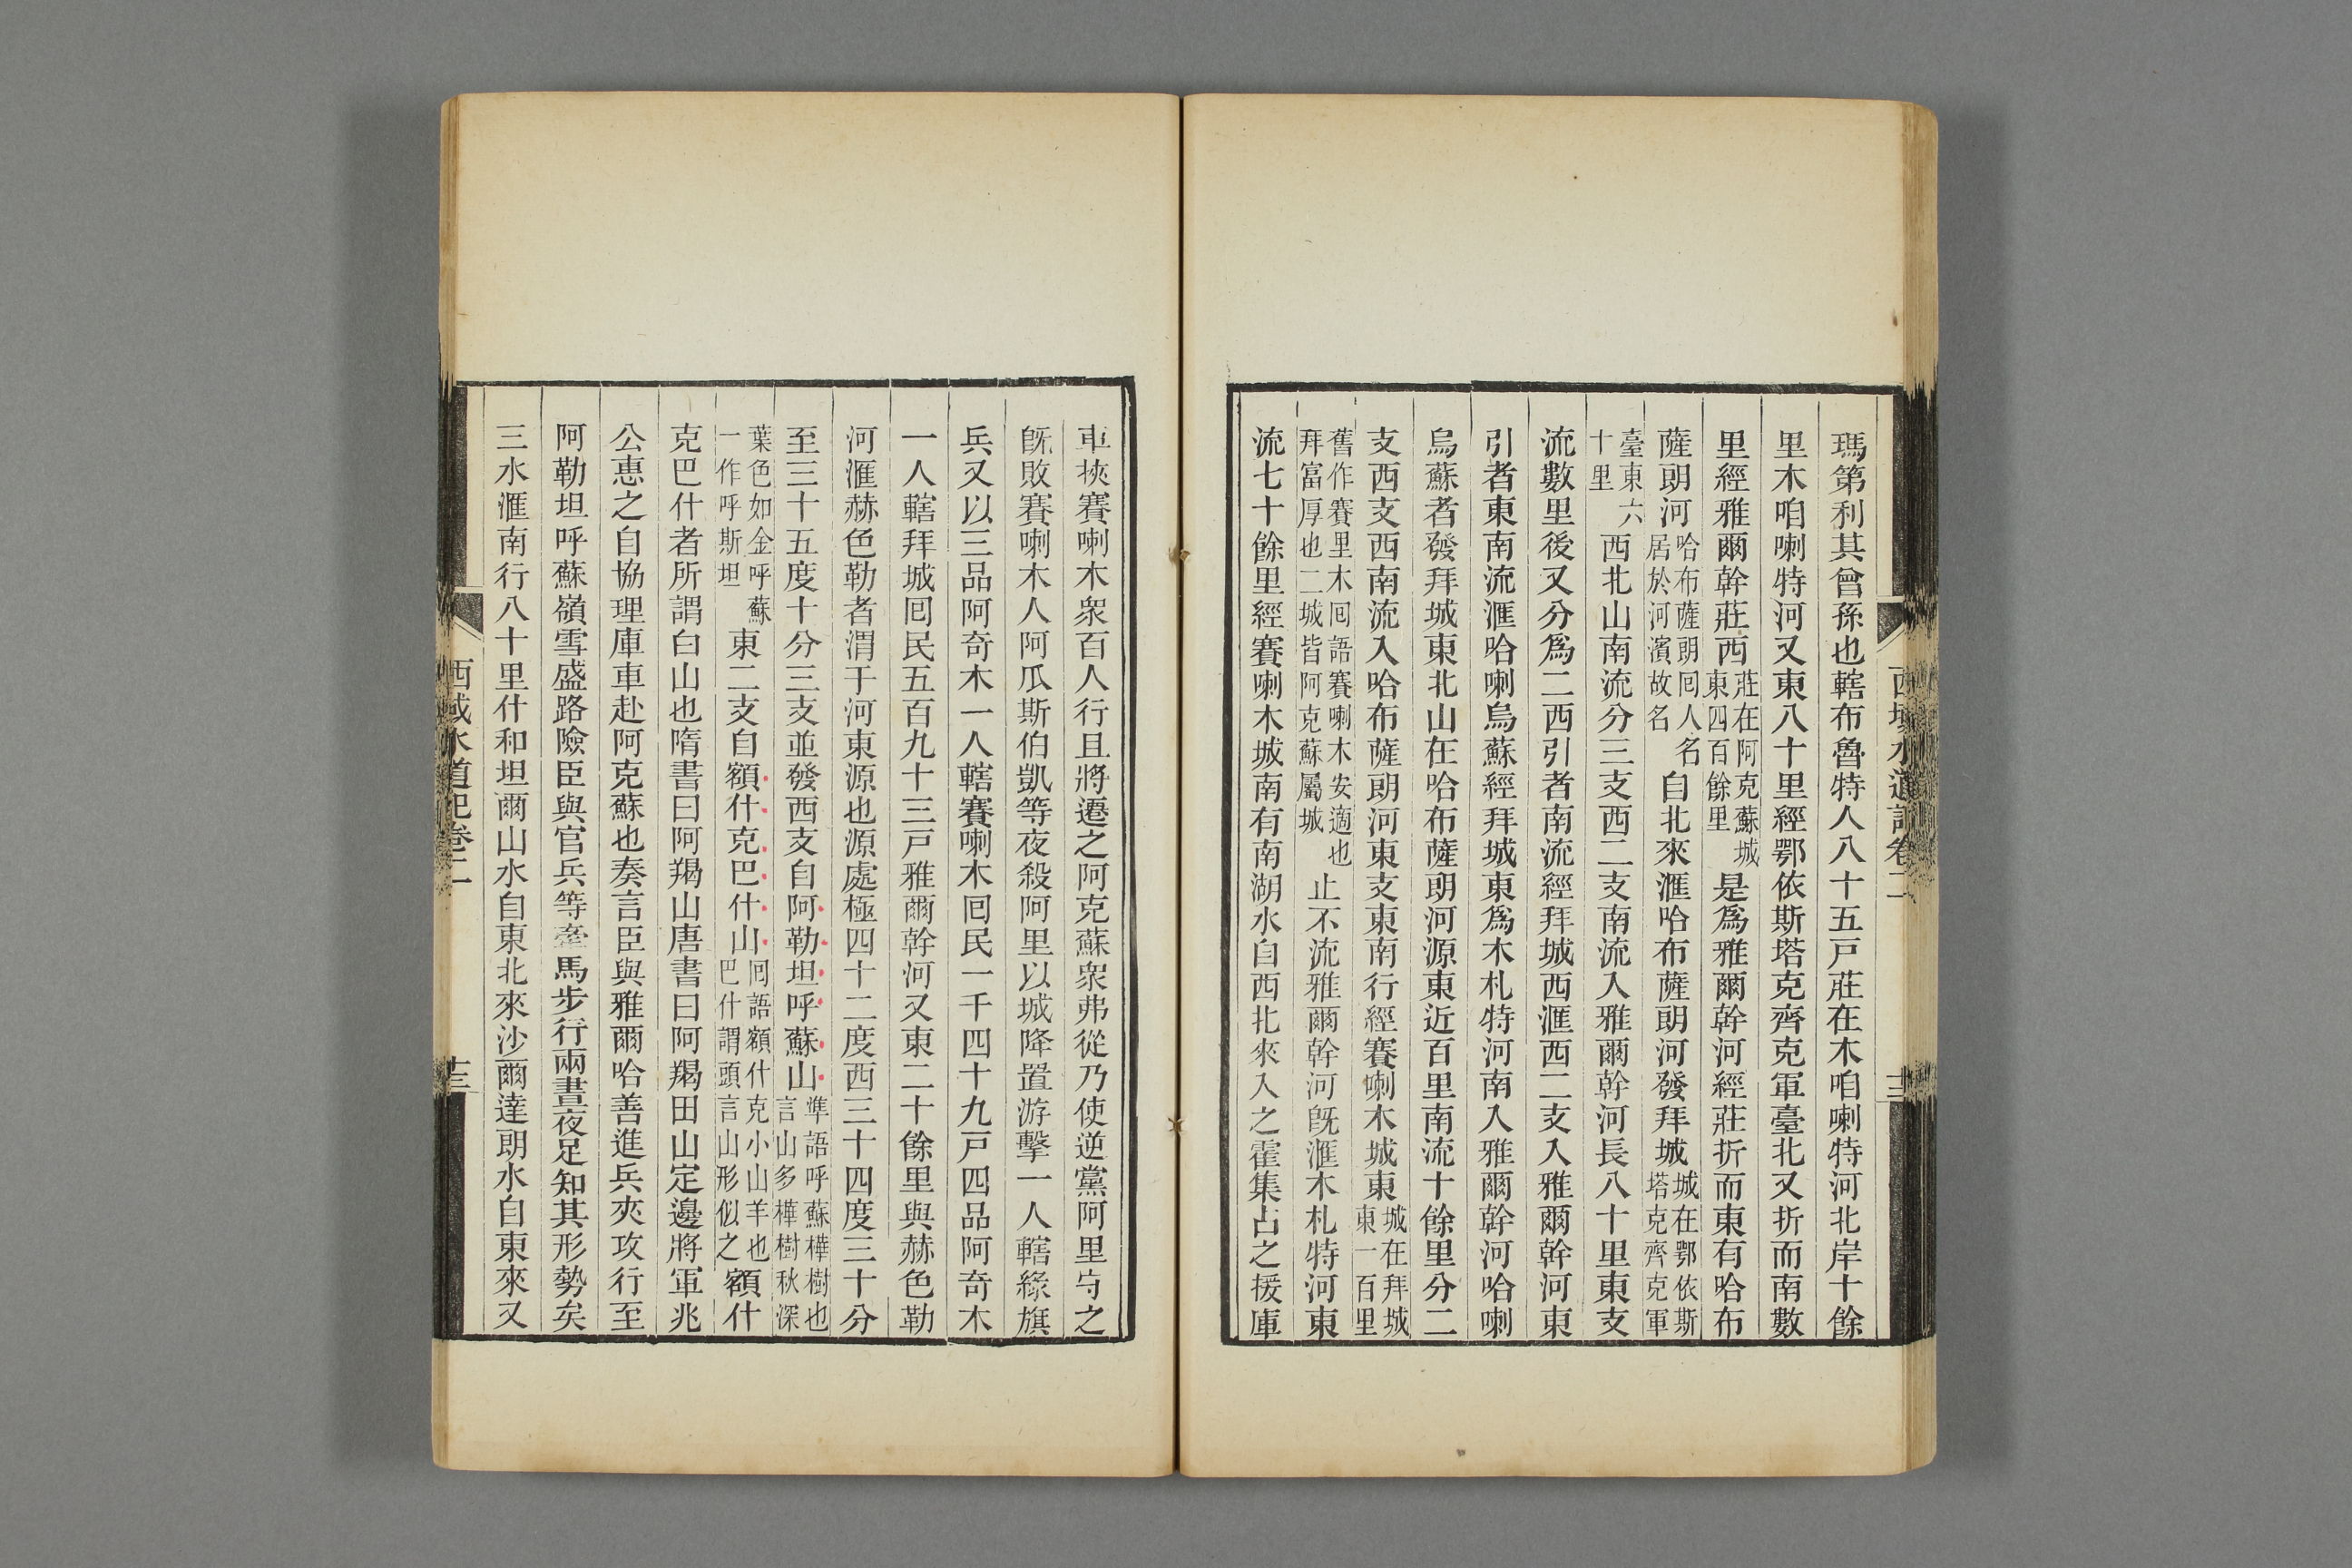 瑪第利其曾孫也轄布魯特人八十五戸莊在木咱喇特河北岸十餘
里木咱喇特河又東八十里經鄂依斯塔克齊克軍臺北又折而南數
里經雅爾幹莊西莊在阿克蘇城東四百餘里是爲雅爾幹河經莊折而東有哈布
薩朗河哈布薩朗囘人名居於河濱故名自北來滙哈布薩朗河發拜城城在鄂依斯塔克齊克軍
臺東六十里西北山南流分三支西二支南流入雅爾幹河長八十里東支
流數里後又分爲二西引者南流經拜城西滙西二支入雅爾幹河東
引者東南流滙哈喇烏蘇經拜城東爲木札特河南入雅爾幹河哈喇
烏蘇者發拜城東北山在哈布薩朗河源東近百里南流十餘里分二
支西支西南流入哈布薩朗河東支東南行經賽喇木城東城在拜城東一百里
舊作賽里木囘語賽喇木安適也拜富厚也二城皆阿克蘇屬城止不流雅爾幹河旣滙木札特河東
流七十餘里經賽喇木城南有南湖水自西北來入之霍集占之援庫
西域水道記卷二
十二
車挾賽喇木衆百人行且將遷之阿克蘇衆弗從乃使逆黨阿里守之
旣敗賽喇木人阿瓜斯伯凱等夜殺阿里以城降置游擊一人轄綠旗
兵又以三品阿奇木一人轄賽喇木囘民一千四十九戸四品阿奇木
一人轄拜城囘民五百九十三戸雅爾幹河又東二十餘里與赫色勒
河滙赫色勒者渭干河東源也源處極四十二度西三十四度三十分
至三十五度十分三支並發西支自阿勒坦呼蘇山準語呼蘇樺樹也言山多樺樹秋深
葉色如金呼蘇一作呼斯坦東二支自額什克巴什山囘語額什克小山羊也巴什謂頭言山形似之額什
克巴什者所謂白山也隋書曰阿羯山唐書曰阿羯田山定邊將軍兆
公惠之自協理庫車赴阿克蘇也奏言臣與雅爾哈善進兵夾攻行至
阿勒坦呼蘇嶺雪盛路險臣與官兵等牽馬步行兩晝夜足知其形勢矣
三水滙南行八十里什和坦爾山水自東北來沙爾達朗水自東來又
西域水道記卷二
十三